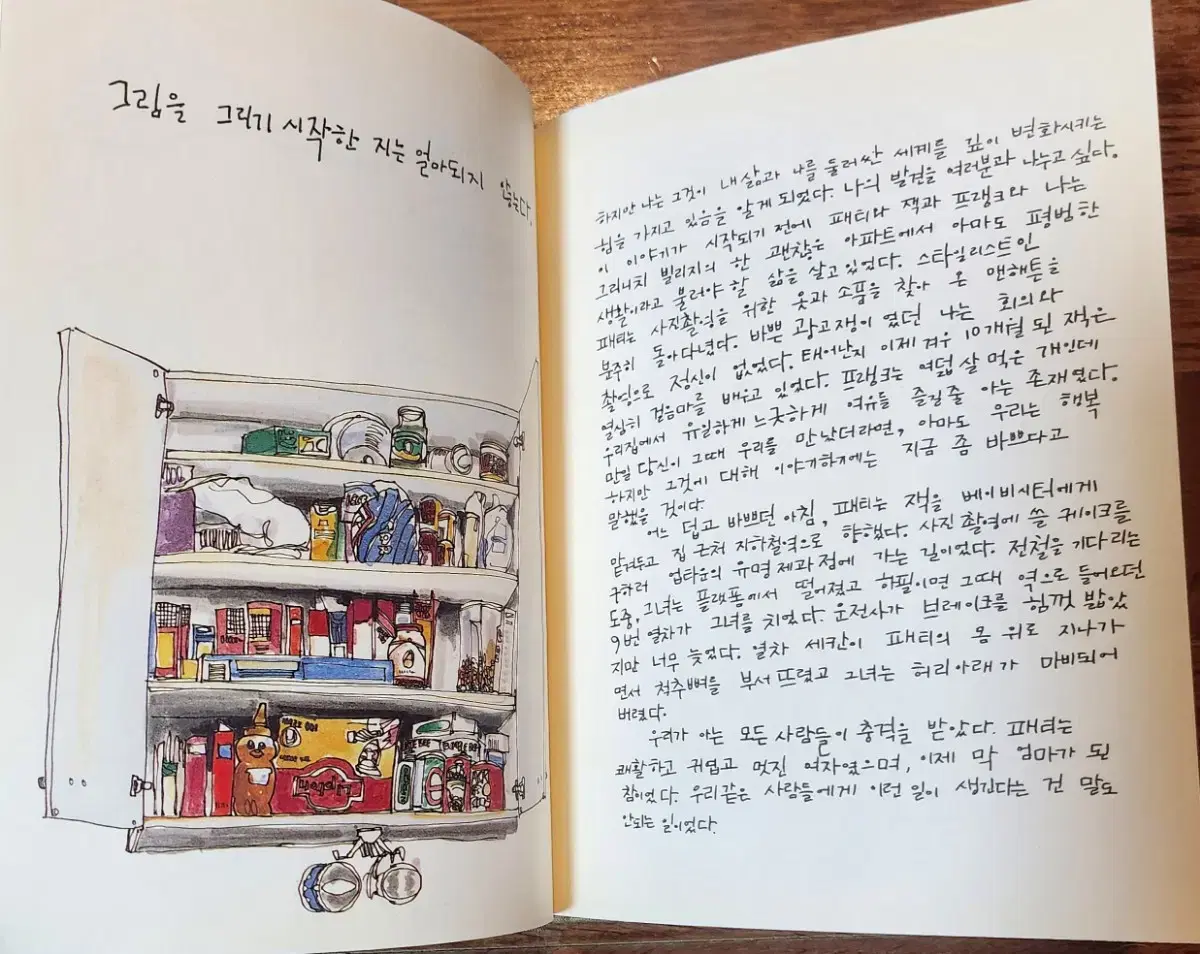 그림을 그리기 시작한 지는 얼마되지 않는다.
하지만 나는 그것이 내 삶과 나를 둘러싼 세계를 깊이 변화시키는
힘을 가지고 있음을 알게 되었다. 나의 발견을 여러분과 나누고 싶다.
이 이야기가 시작되기 전에 패티와 잭과 프랭크와 나는
그리니치 빌리지의 한 괜찮은 아파트에서 아마도 평범한
생활이라고 불러야 할 삶을 살고 있었다. 스타일리스트인
패티는 사진촬영을 위한 옷과 소품을 찾아 온 맨해튼을
분주히 돌아다녔다. 바쁜 광고쟁이였던 나는 회의와
촬영으로 정신이 없었다. 태어난지 이제 겨우 10개월 된 잭은
열심히 걸음마를 배우고 있었다. 프랭크는 여덟 살 먹은 개인데
우리집에서 유일하게 느긋하게 여유를 즐길 줄 아는 존재였다.
만일 당신이 그때 우리를 만났더라면, 아마도 우리는 행복
하지만 그것에 대해 이야기하기에는 지금 좀 바쁘다고
말했을 것이다.
어느 덥고 바쁘던 아침, 패티는 잭을 베이비시터에게
맡겨두고 집 근처 지하철역으로 향했다. 사진 촬영에 쓸 케이크를
구하러 업타운의 유명 제과점에 가는 길이었다. 전철을 기다리는
도중, 그녀는 플랫폼에서 떨어졌고 하필이면 그때 역으로 들어오던
9번 열차가 그녀를 치었다. 운전사가 브레이크를 힘껏 밟았
지만 너무 늦었다. 열차 세칸이 패티의 몸 위로 지나가
면서 척추뼈를 부서뜨렸고 그녀는 허리아래가 마비되어
버렸다.
우리가 아는 모든 사람들이 충격을 받았다. 패티는
쾌활하고 귀엽고 멋진 여자였으며, 이제 막 엄마가 된
참이었다. 우리같은 사람들에게 이런 일이 생긴다는 건 말도
안되는 일이었다.